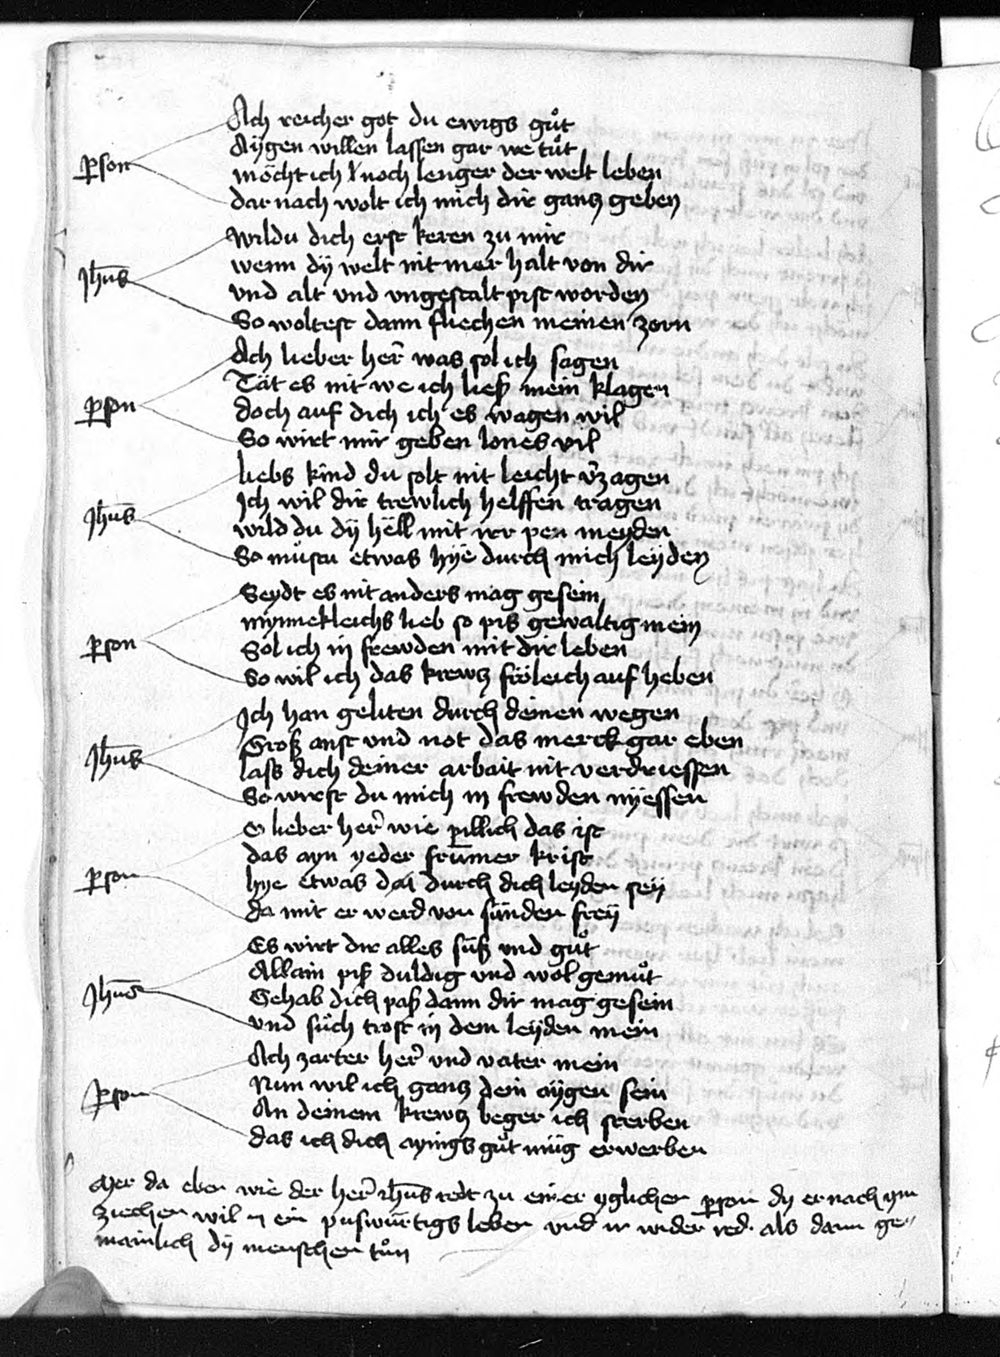 Ach reicher got du ewigs gůt
Aÿgen willen lassen gar we tůt
person
möcht ich noch lenger der welt leben
dar nach wolt ich mich dir gantz geben
wildu dich erst keren zu mir
wenn dÿ welt nit mer halt von dir
Jhūs
vnd alt vnd vngestalt pist worden
So woltest dann fliechen meinen zorn
Ach lieber her̄ was sol ich sagen
Tät es nit we ich ließ mein klagen
person
doch auf dich ich es wagen wil
So wirt mir geben lones vil
liebs kind du solt nit leicht v̄zagen
Ich wil dir trewlich helffen tragen
Jhūs
wild du dÿ hëll mit irr pen meyden
So müstu etwas hÿe durch mich leÿden
Seydt es nit anders mag gesein
mynnekleichs lieb so pis gewaltig mein
person
Sol ich in frewden mit dir leben
So wil ich das krewtz fröleich auf heben
Ich han geliten durch deinen wegen
Groß anst vnd not das merck gar eben
Jhūs
lass dich deiner arbait nit verdriessen
So wirst du mich in frewden nÿessen
O lieber her̄ wie pillich das ist
das ayn yeder frūmer krist
person
hye etwas da durch dich leyden seÿ
da mit er werd von sünden freÿ
Es wirt dir alles süß vnd gůt
Allain piß duldig vnd wol gemůt
Jhūs
Gehab dich paß dann dir mag gesein
vnd sůch trost in dem leÿden mein
Ach zarter her̄ vnd vater mein
Nun wil ich gantz dein aÿgen sein
person
An deinem krewtz beger ich sterben
das ich dich aynigs gůt müg erwerben
Mer da eben wie der her̄ Jhūs redt zu einer yglichen person dy er nach ym
ziechen wil in ein puswürtigs leben vnd ir wider red als dann ge¬
mainlich dÿ menschen tůn